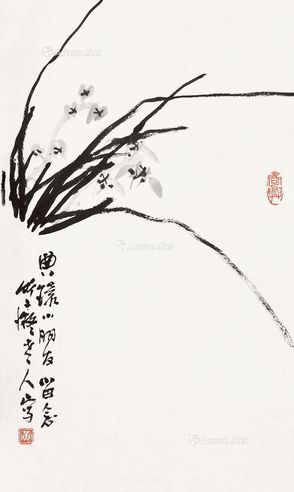 典小朋友留念
竹癡老人寫
黄
Artron.Net
Artron.Net
Artron.Net